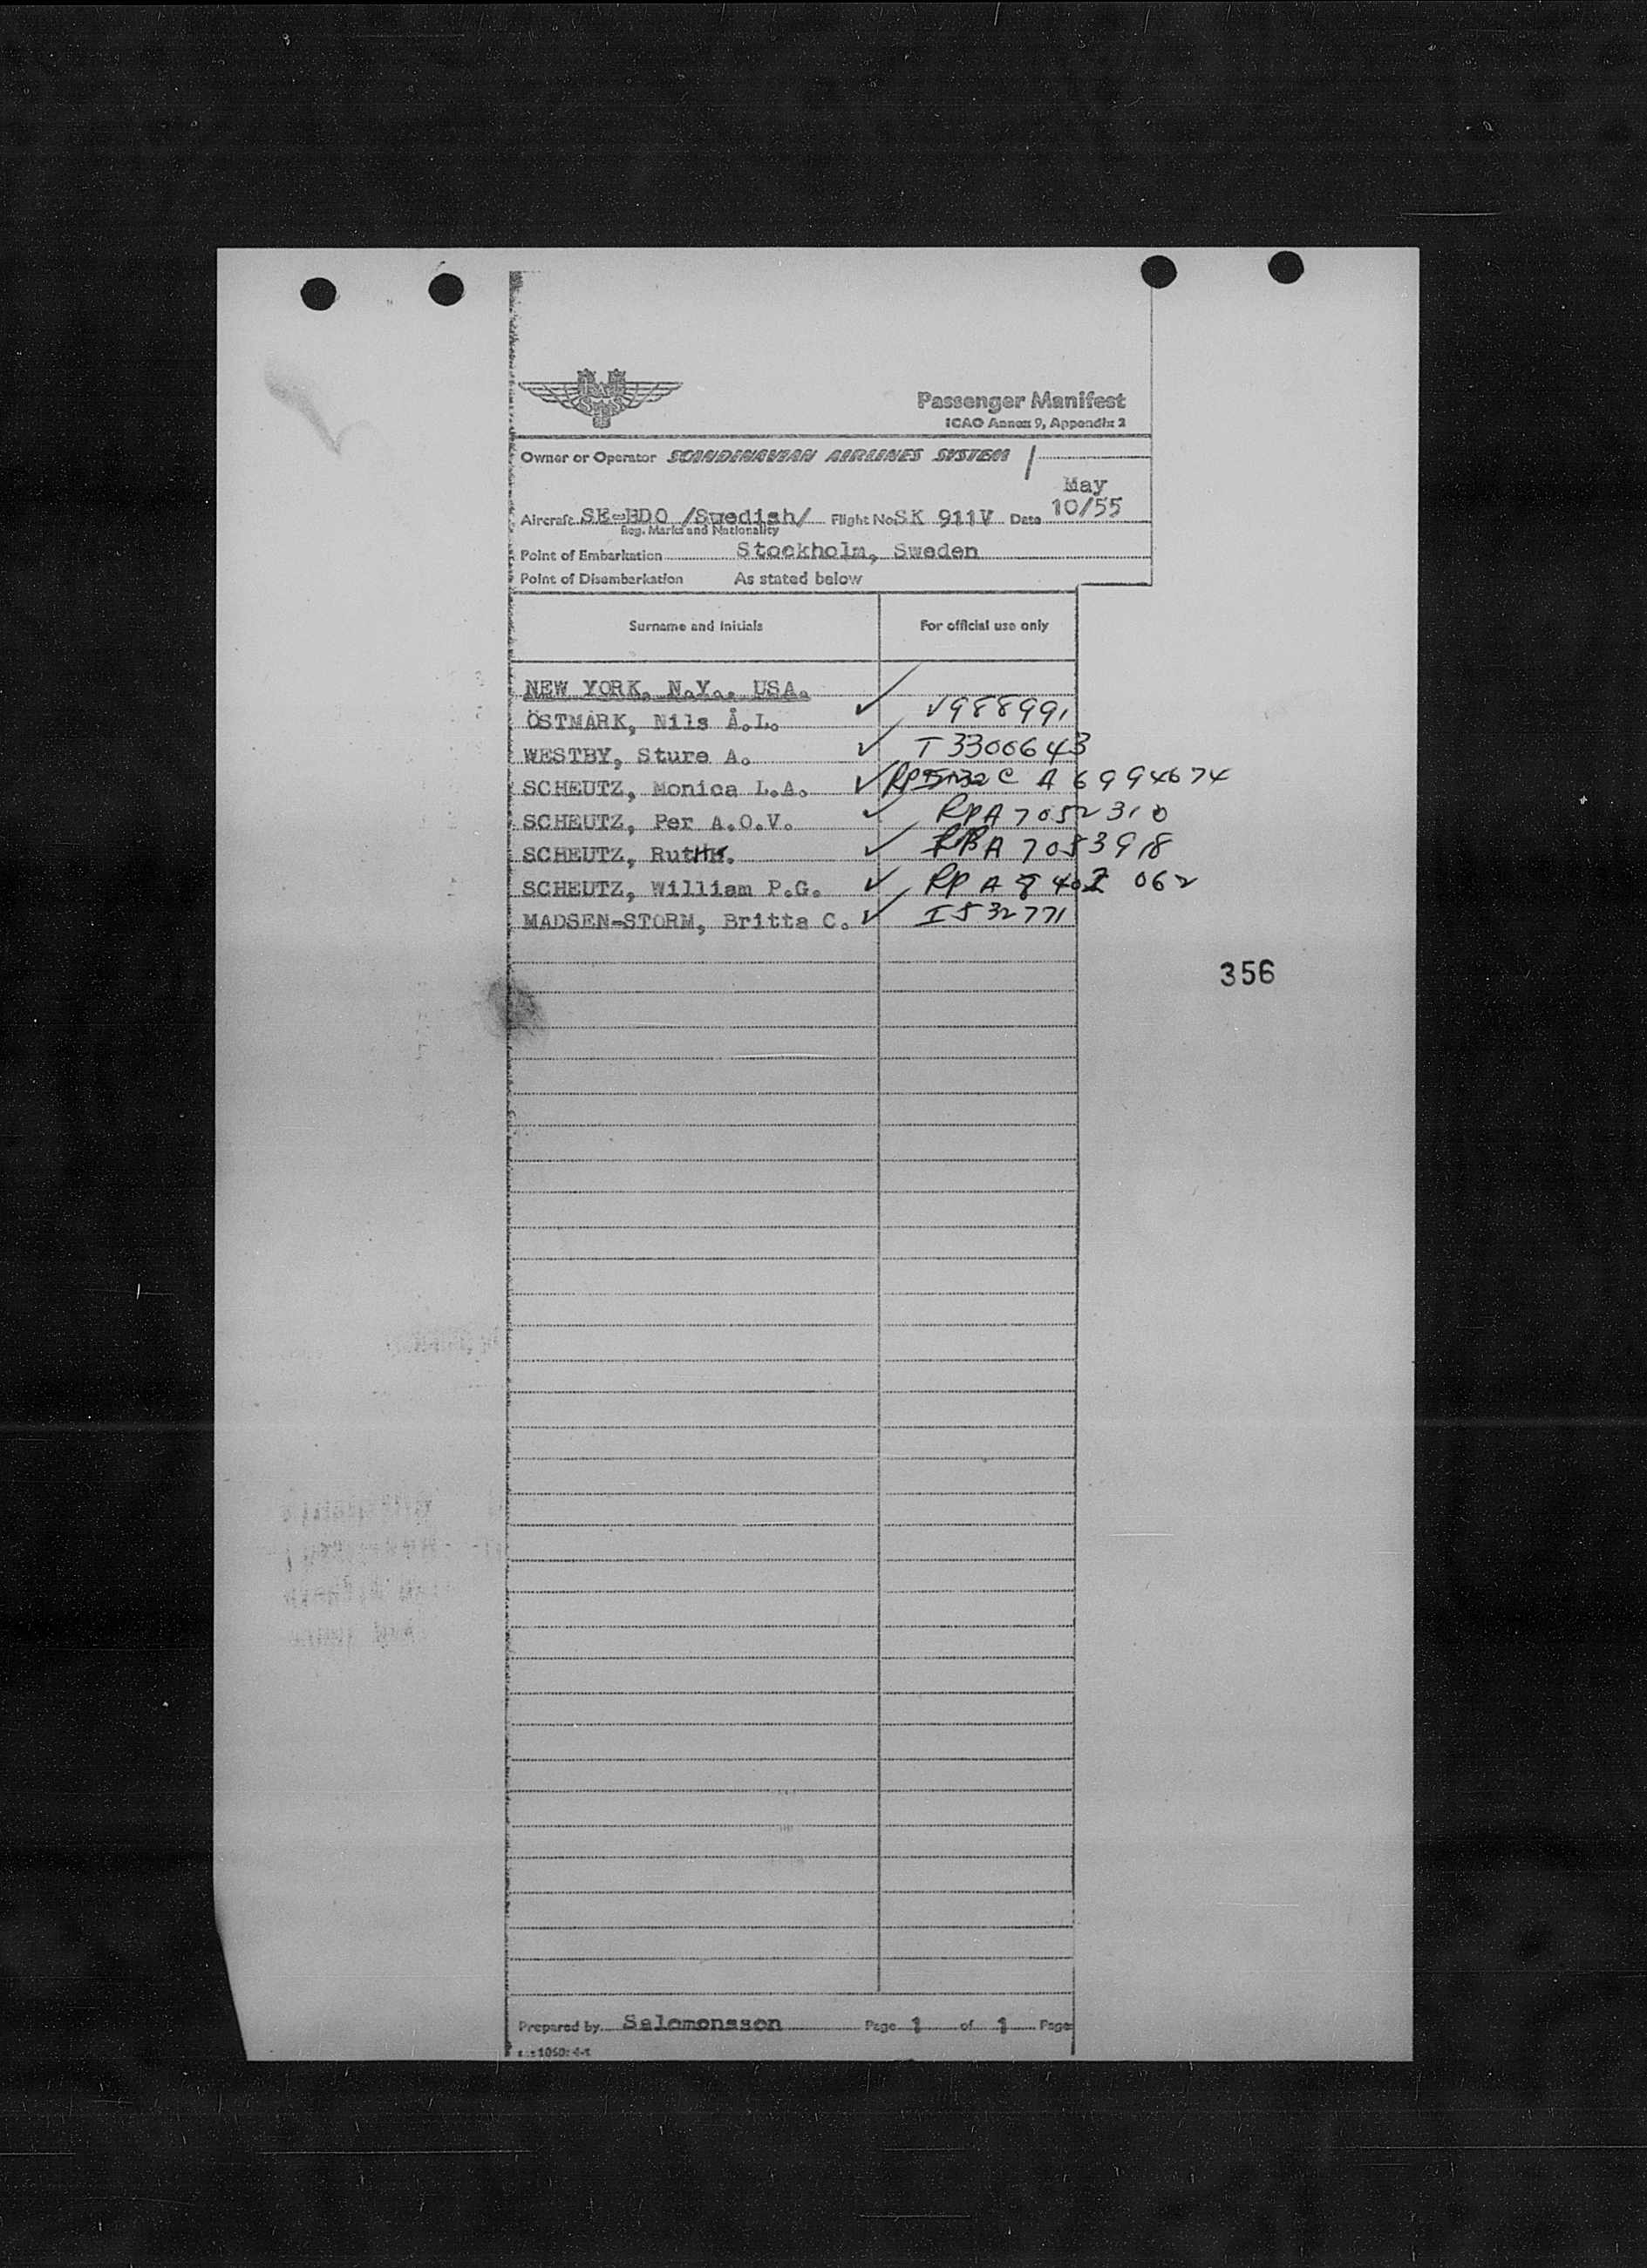 Passenger Manifest
ICAO Annex 9, Appendix 2
Owner or Operator SCANDINAVIAN AIRLINES SYSTEM
May
Aircraft SE-BDO /Swedish/ Flight No. SK 911V Date 10/55
Reg. Marks and Nationality
Point of Embarkation Stockholm, Sweden
Point of Disembarkation As stated below
Surname and Initials For official use only
NEW YORK, N.Y., USA.
ÖSTMARK, Nils Å.L. ✓ V988991
WESTBY, Sture A. ✓ I 3300643
SCHEUTZ, Monica L.A. ✓ RP C A 6994674
SCHEUTZ, Per A.O.V. ✓ RP A 7052310
SCHEUTZ, Ruth ✓ A 7053918
SCHEUTZ, William P.G. ✓ RP A 062
MADSEN-STORM, Britta C. ✓ I 532771
356
Prepared by Salomonsson Page 1 of 1 Page